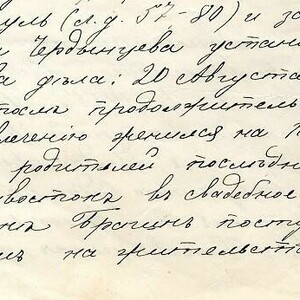 уль (л. д. 57-80) и за
и Чердынцева устан
ва дѣла: 20 Августа
послѣ продолжитель
влеченію женился на
родителей послѣдн
востокъ въ свадебное
нъ Брацнъ посту
мъ на жительств